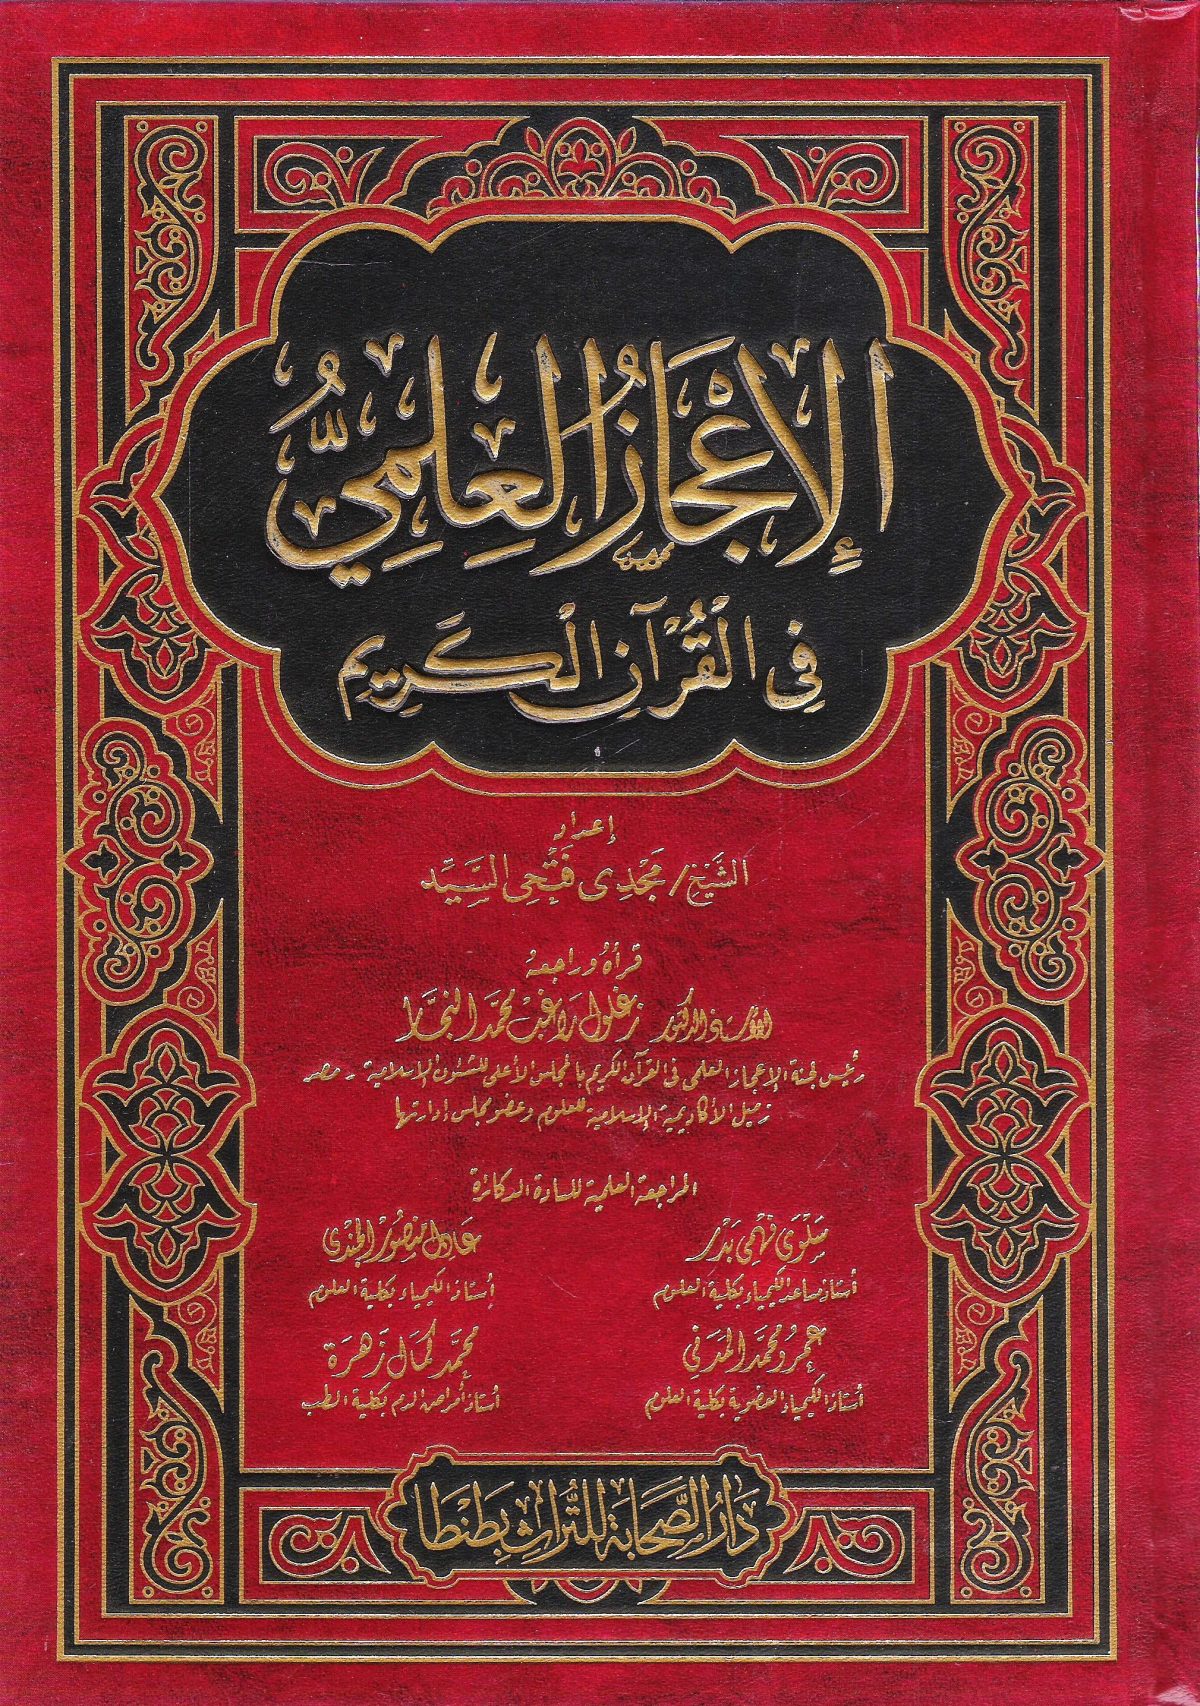 الإِعْجَازُ العِلِمِيُّ
فِي الْقُرْآنِ الْكَرِيمِ
إعداد
الشَّيْخ / مَجْدِى فَتْحِى السَّيِّد
قرأهُ وراجعهُ
الأستاذ الدكتور زغلول رَاغب محمَّد النجَّار
رئيس لجنة الإعجاز العلمى فى القرآن الكريم بالمجلس الأعلى للشئون الإسلامية - مصر
زميل الأكاديمية الإسلامية للعلوم وعضو مجلس إدارتها
المراجعة العلمية للسادة الدكاترة
سَلْوَى فَهْمِى بَدْر
عَادل منصُور الجندى
أستاذ مساعد الكيمياء بكلية العلوم
أستاذ الكيمياء بكلية العلوم
عمرو محمَّد المَدَنِي
محمَّد كمَال زَهرَة
أستاذ الكيمياء العضوية بكلية العلوم
أستاذ أمراض الدم بكلية الطب
دَارُ الصَّحَابَة للتُّرَاثِ بِطَنْطَا